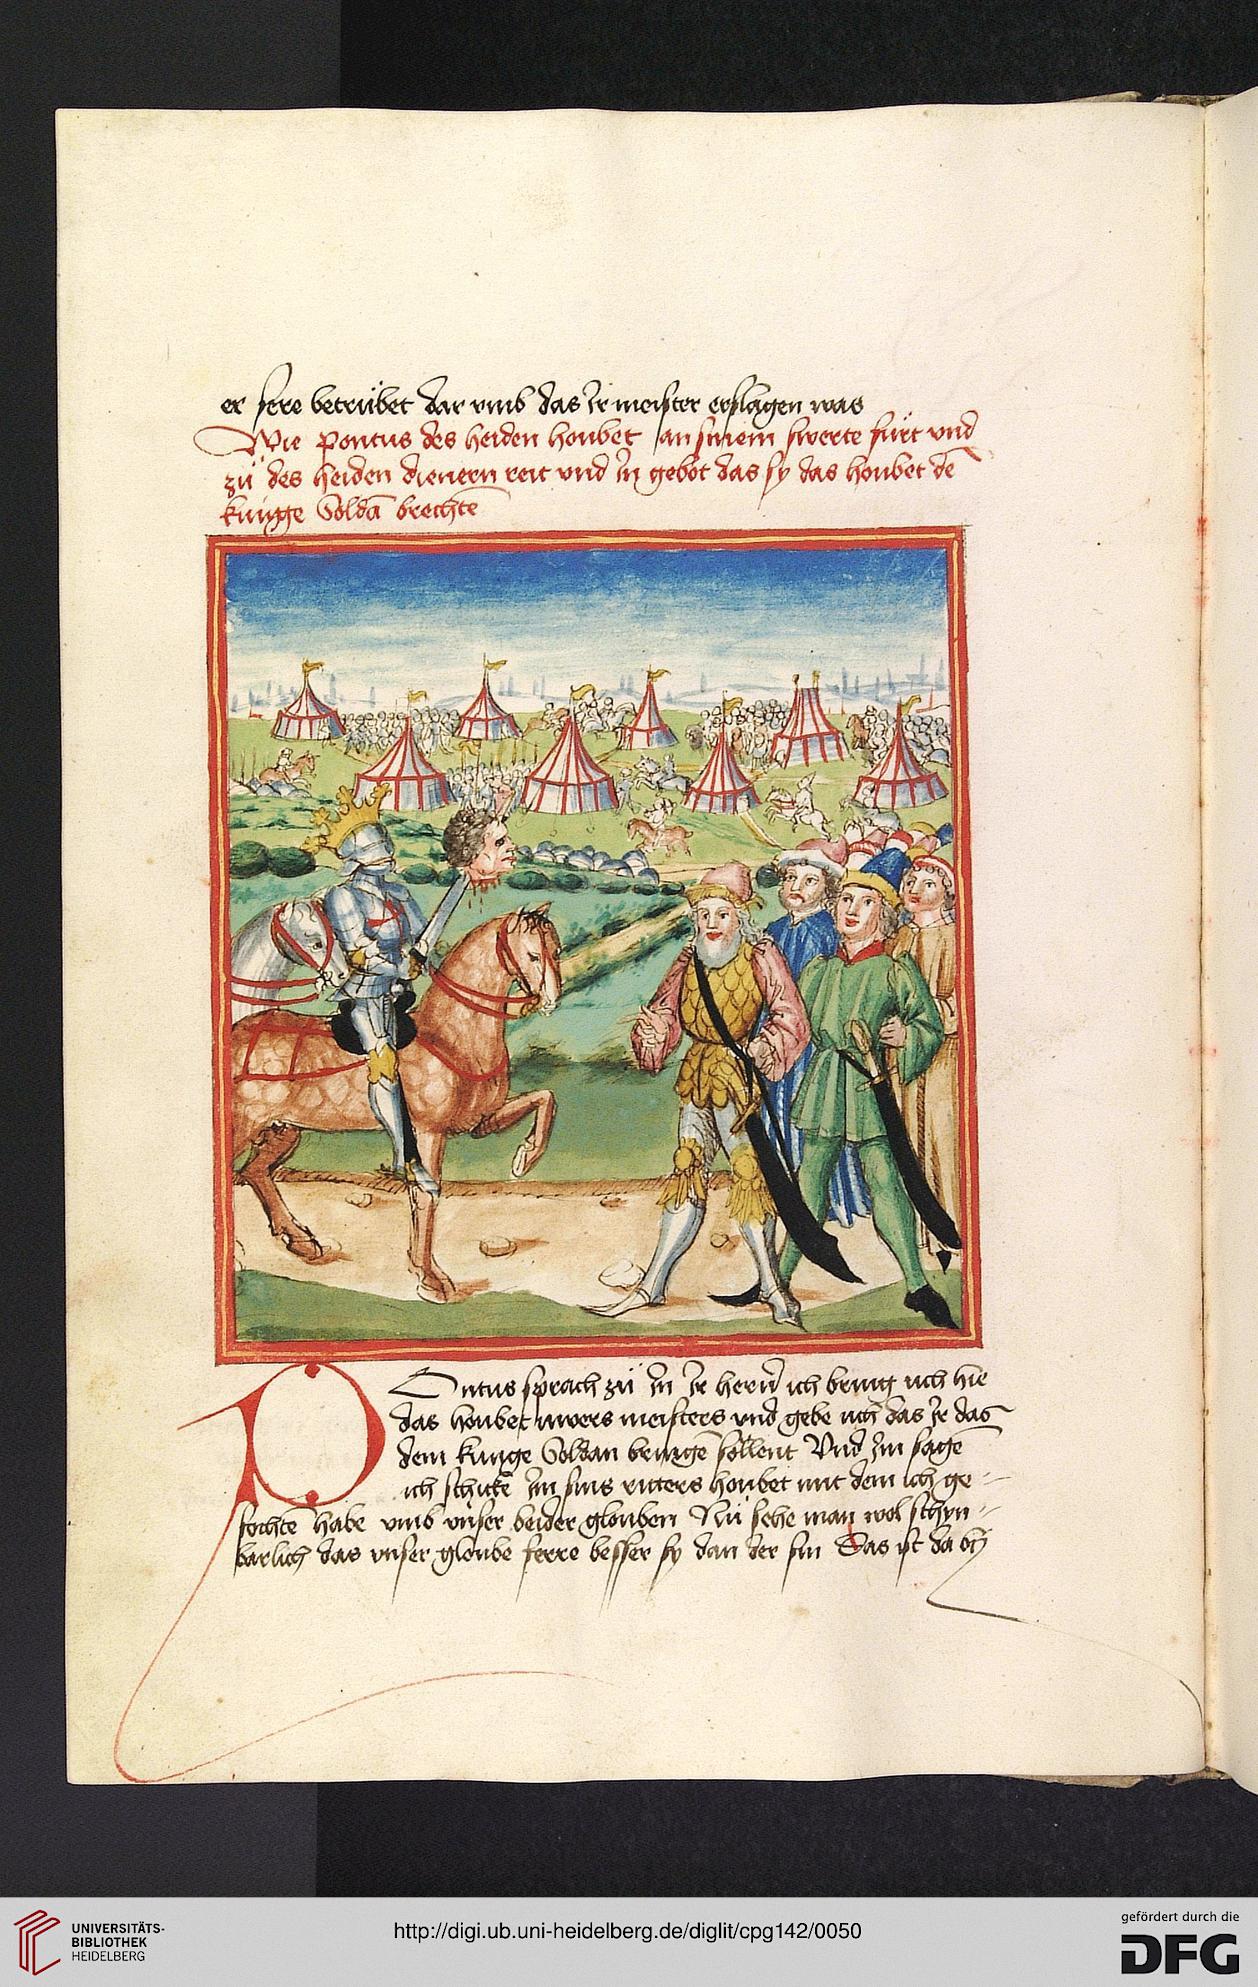 er sere betrübet dar vmb das Ir meister erslagen was
Wie pontus des heiden houbet an sinem swerte fürt vnd
zü des heiden dienern reit vnd In gebot das sy das houbet dē
kunge Soldā brechtē
POntus sprach zü In Ir herñ ich bring uch hie
das houbet uwers meisters vnd gebe uch das Ir das
dem kunge Soldan bringē söllent Vnd Im sagē
ich schickē Im sins ritters houbet mit dem ich ge-
fochtē habe vmb vnser beider glouben Nü sehe man wol schyn-
barlich das vnser gloube ferre besser sy dan der sin Das ist da by
UNIVERSITÄTS-
BIBLIOTHEK
HEIDELBERG
http://digi.ub.uni-heidelberg.de/diglit/cpg142/0050
gefördert durch die
DFG